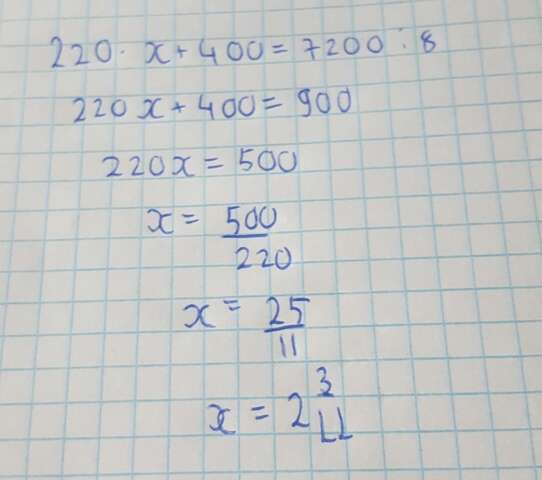 220 · x + 400 = 7200 : 8
220 x + 400 = 900
220x = 500
x = 500/220
x = 25/11
x = 2 3/11